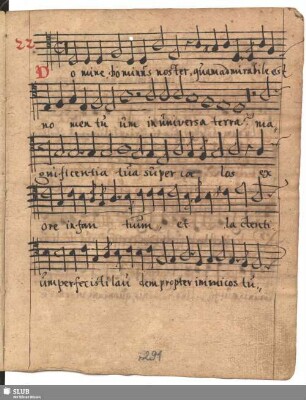 22
Domine dominus noster, quam admirabile est
no men tu um in universa terra: ma,,
gnificentia tua super coe los ex
ore infan tium et la ctenti
um perfecisti lau dem propter inimicos tu,,
291
SLUB